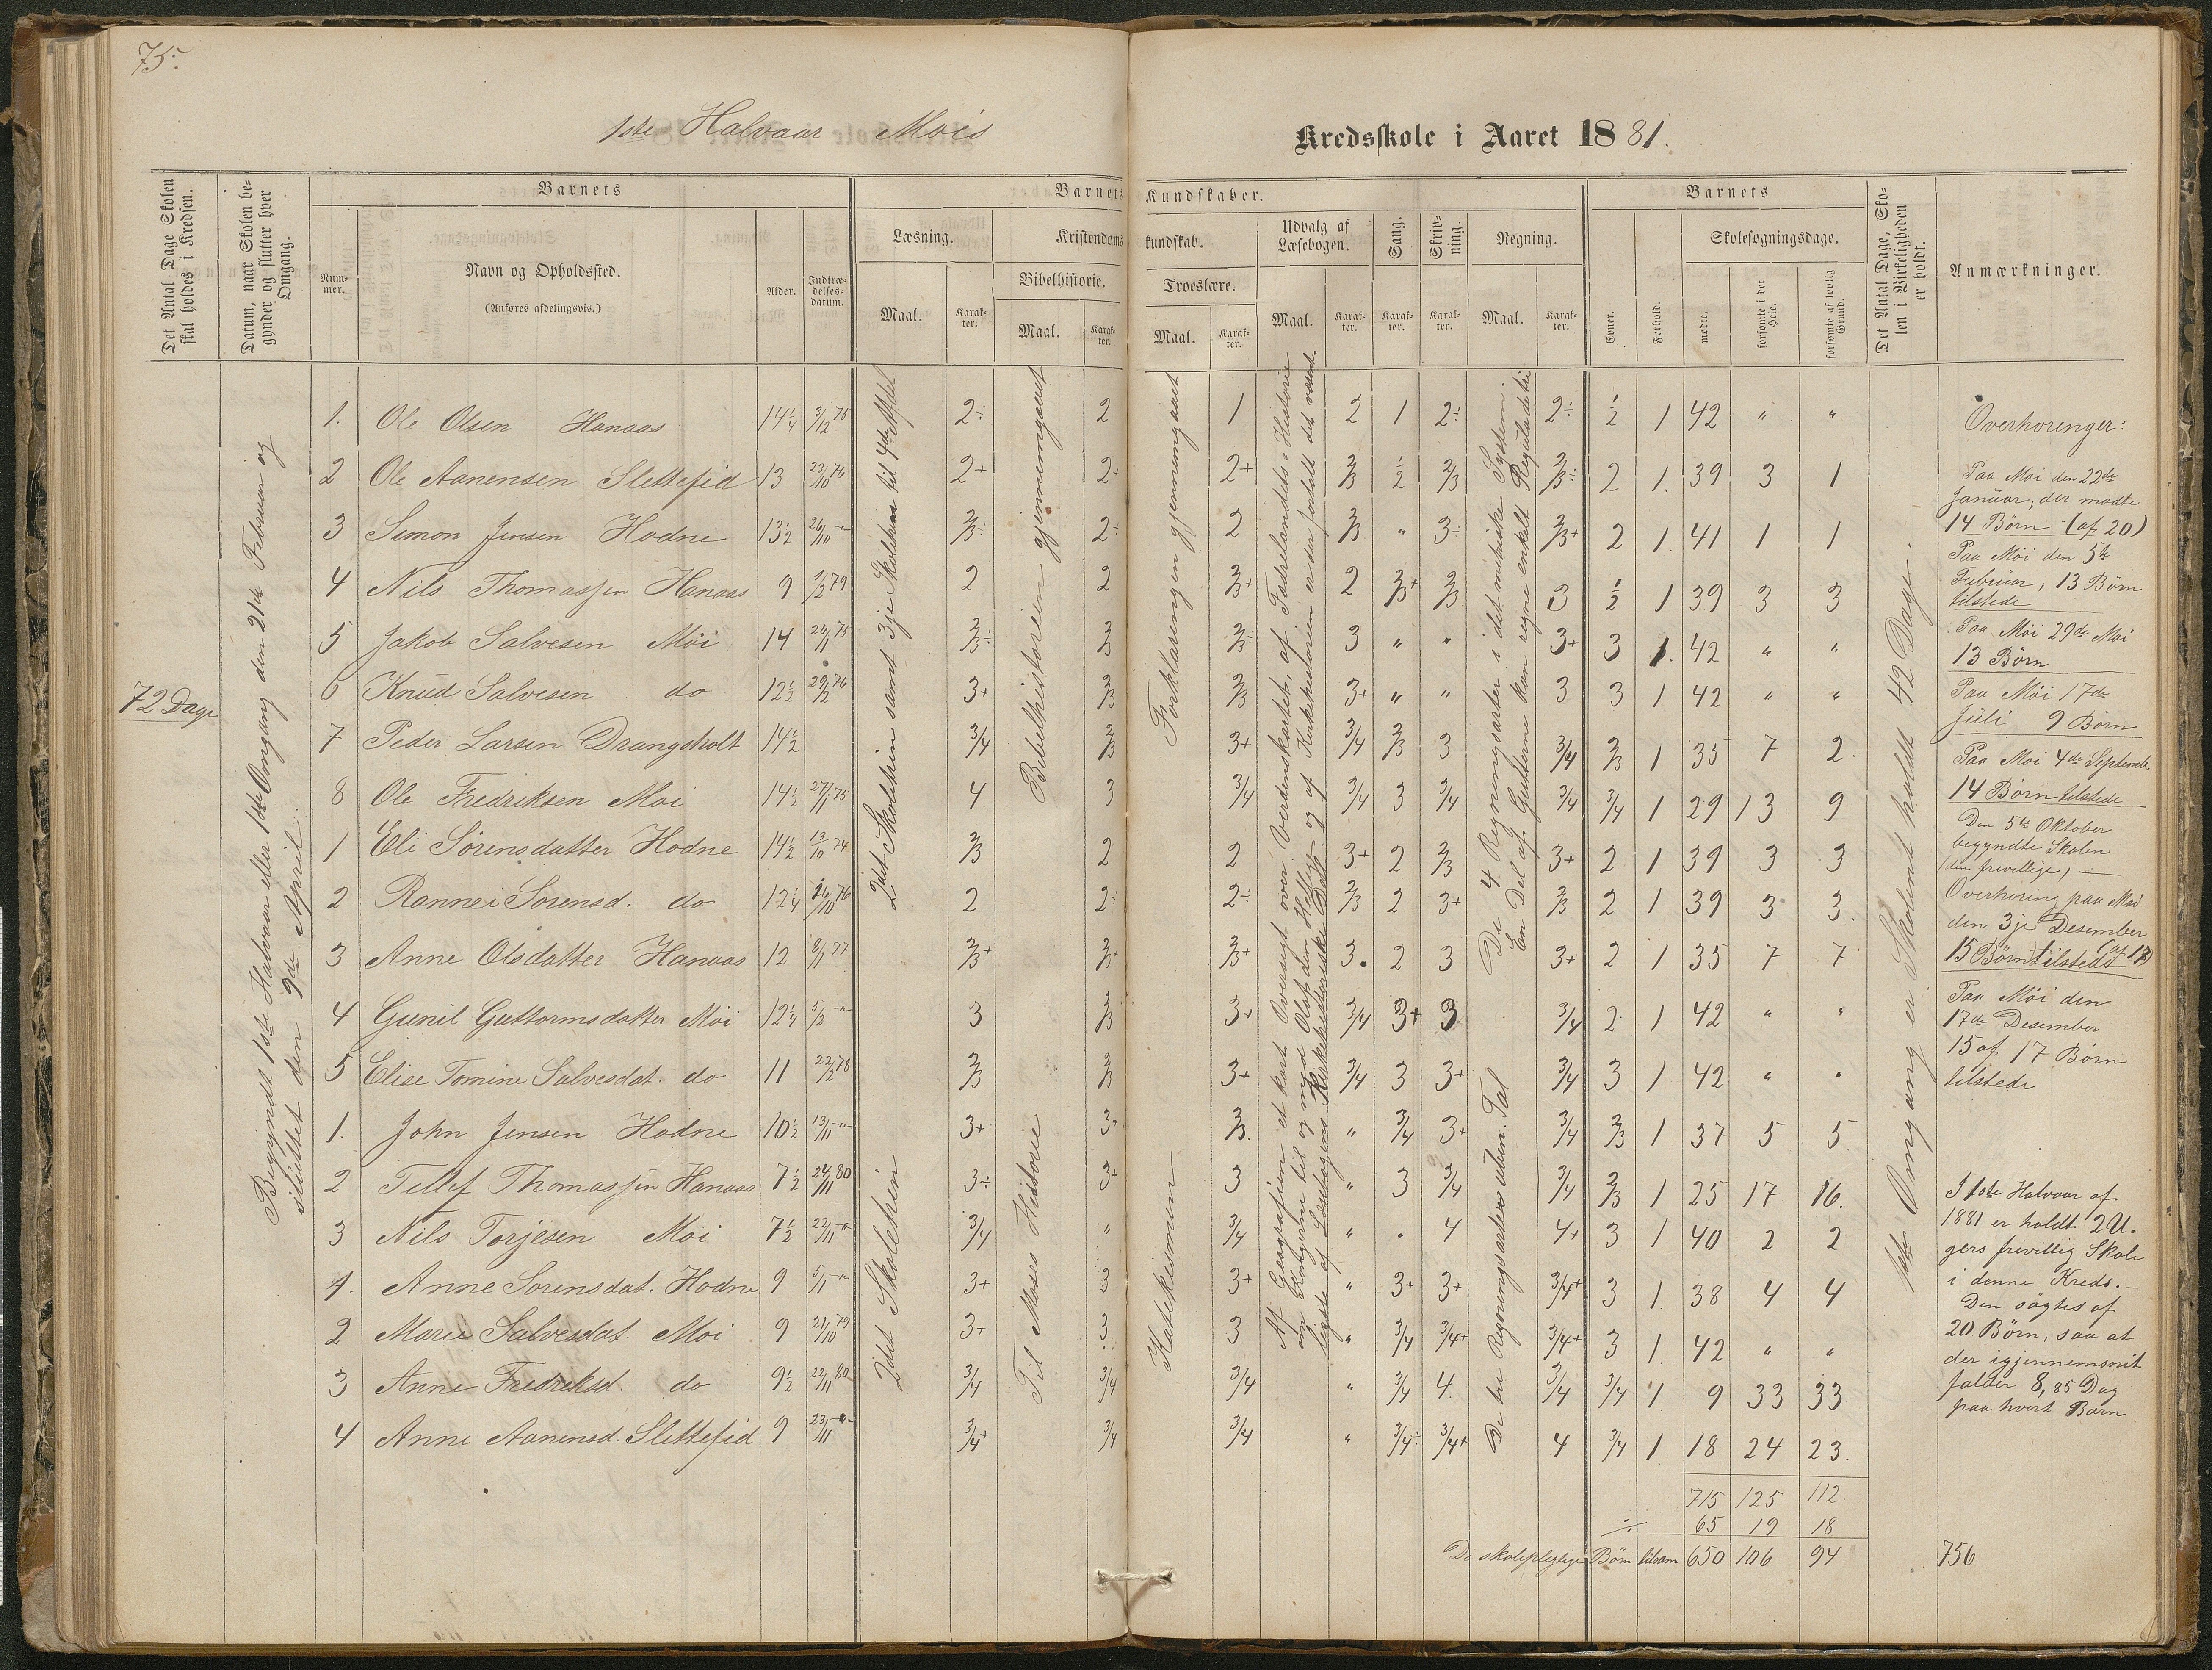 75.
1ste Halvaar Mois
Kredsskole i Aaret 1881.
Det Antal Dage Skolen skal holdes i Kredsen.
Datum, naar Skolen begynder og slutter hver Omgang.
Barnets
Nummer.
Navn og Opholdssted.
(Anføres afdelingsvis.)
Alder.
Indtrædelsesdatum.
Barnets Kundskaber.
Læsning.
Maal.
Karakter.
Kristendomskundskab.
Bibelhistorie.
Maal.
Karakter.
Troeslære.
Maal.
Karakter.
Udvalg af Læsebogen.
Maal.
Karakter.
Sang.
Karakter.
Skrivning.
Karakter.
Regning.
Maal.
Karakter.
Barnets
Evner.
Forhold.
Skolesøgningsdage.
mødte.
forsømte i det Hele.
forsømte af lovlig Grund.
Det Antal Dage, Skolen i Virkeligheden er holdt.
Anmærkninger.
72 Dage
Begyndt 1ste Halvaar eller 1ste Omgang den 21de Februar og
sluttet den 9de April.
2det Skoletrin samt 3je Skoletrin til 4de Afdel.
Bibelhistorien gjennemgaaet
Forklaringen gjennemgaaet
Af Geografien et kort Oversigt over Verdenskartet, af Fædrelandets Historie
om Kongerne til og med Olaf den Hellige og af Kirkehistorien er der fortalt det væsent-
ligste af Læsebogens Kirkehistoriske Del.
De 4 Regningsarter i det metriske System.
En Del af Gutterne kan regne enkelt Reguladetri
1. Ole Olsen Hanaas 14¼ 3/12 75 2÷ 2 1 2 1 2÷ 2÷ ½ 1 42 " "
2 Ole Aanensen Slettefid 13 23/10 76 2+ 2+ 2+ 2/3 ½ 2/3 2/3÷ 2 1. 39 3 1
3 Simon Jensen Hodne 13½ 26/10 -"- 2/3÷ 2÷ 2 2/3 " 3÷ 2/3+ 2 1. 41 1 1
4 Nils Thomassen Hanaas 9 1/2 79 2 2 2/3+ 2 2/3+ 2/3 3 ½ 1 39 3 3
5 Jakob Salvesen Moi 14 26/1 75 2/3÷ 2/3 2/3÷ 3 " " 3+ 3 1. 42 " "
6 Knud Salvesen do 12½ 29/2 76 3+ 2/3 2/3 3+ " " 3 3 1 42 " "
7 Peder Larsen Drangsholt 14½ 3/4 2/3 3+ 3/4 2/3 3 3/4 2/3 1 35 7 2
8 Ole Fredriksen Moi 14½ 27/1 75 4 3 3/4 3/4 3 3/4 3/4 3/4 1 29 13 9
1 Eli Sørensdatter Hodne 14½ 13/10 74 2/3 2 2 3+ 2 2/3 3+ 2 1 39 3 3
2 Rannei Sorensd. do 12¼ 16/10 76 2 2÷ 2÷ 2/3 2 3+ 2/3 2 1 39 3 3.
3 Anne Olsdatter Hanaas 12 8/1 77 2/3+ 2/3+ 2/3+ 3. 2 3 3+ 2 1 35 7 7
4 Gunil Guttormsdatter Moi 12¼ 3/2 -"- 3 2/3 3+ 3/4 3+ 3 3/4 2 1 42 " "
5 Elise Tomine Salvesdat. do 11 22/2 78 2/3 2/3 3+ 3/4 3 3+ 3/4 3 1 42 " "
2det Skoletrin
Til Moses Historie
Katekismum
De tre Regningsarter uben. Tal
1. John Jensen Hodne 10½ 13/11 -"- 3+ 3+ 2/3. " 3/4 3+ 3/4 2/3 1 37 5 5
2 Tellef Thomassen Hanaas 7½ 24/11 80 3÷ 3+ 3 " 3 3/4 3/4 2/3 1 25 17 16.
3 Nils Torjesen Moi 7½ 22/11 -"- 3/4 " 3/4 " " 4 4+ 3 1 40 2 2
1. Anne Sorensdat. Hodne 9 5/1 -"- 3+ 3 3+ " 3+ 3+ 3/4+ 3 1. 38 4 4
2 Marie Salvesdat. Moi 9 21/10 79 3+ 3 3 " 3/4 3/4+ 3/4+ 3 1. 42 " "
3 Anne Fredriksd. do 9½ 22/11 80 3/4 3/4 3/4 " 3/4 4. 3/4 3/4 1. 9 33 33
4 Anne Aanensd. Slettefid 9 23/11 -"- 3/4+ 3/4 3/4 " 3/4÷ 3/4+ 4 3/4 1. 18 24 23.
715 125 112
÷ 65 19 18
De skolepligtige Børn tilsam 650 106 94
756
1ste Omgang er Skolen holdt 42 Dage.
Overhorenger:
Paa Moi den 22de
Januar, der mødte
14 Børn (af 20)
Paa Moi den 5te
Februar, 13 Børn
tilstede
Paa Moi 29de Mai
13 Børn
Paa Moi 17de
Juli 9 Børn
Paa Moi 4de Septemb.
14 Børn tilstede
Den 5te Oktober
begyndte Skolen
(den frivillige) —
Overhoring paa Moi
den 3je Desember
15 Børn tilstede (af 17)
Paa Moi den
17de Desember
15 af 17 Børn
tilstede
I 1ste Halvaar af
1881 er holdt 2 U-
gers frivillig Skole
i denne Kreds. —
Den søgtes af
20 Børn, saa at
der igjennemsnit
falder 8,85 Dag
paa hvert Barn